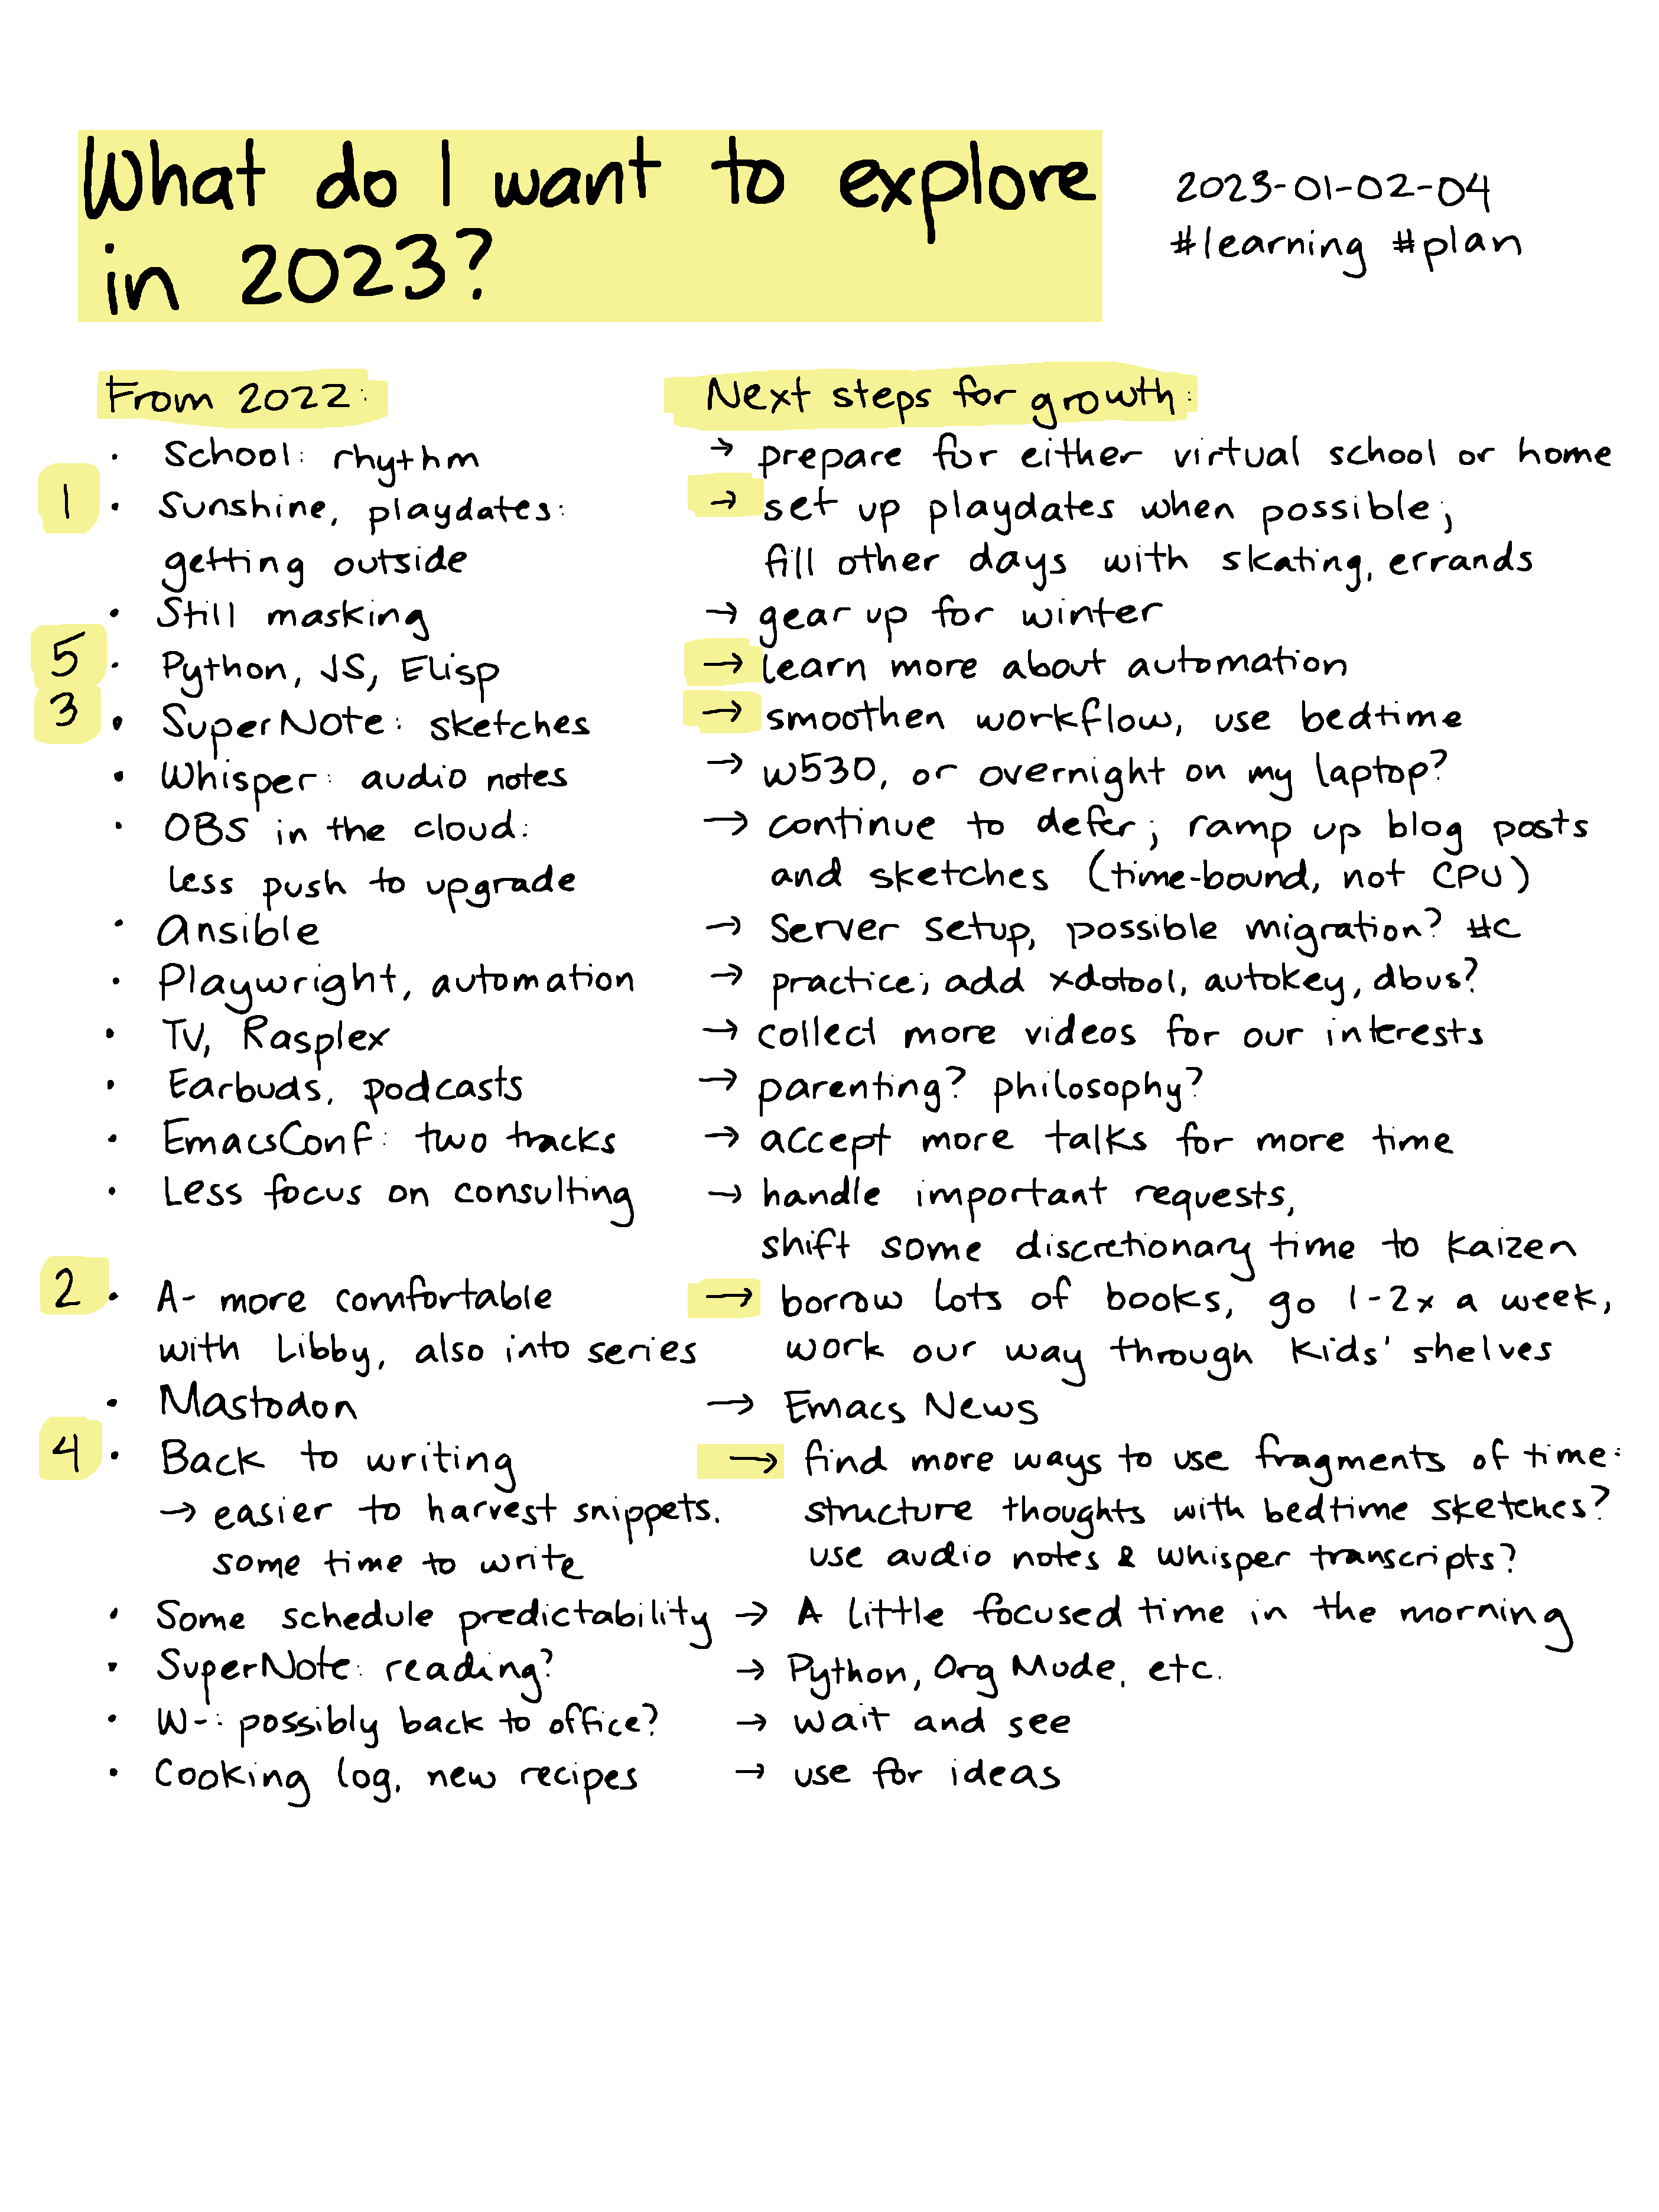 What do I want to explore
in 2023?
2023-01-02-04
#learning #plan
From 2022:
Next steps for growth:
· School: rhythm
→ prepare for either virtual school or home
1 · Sunshine, playdates:
getting outside
→ set up playdates when possible;
fill other days with skating, errands
· Still masking
→ gear up for winter
5 · Python, JS, Elisp
→ learn more about automation
3 · SuperNote: sketches
→ smoothen workflow, use bedtime
· Whisper: audio notes
→ W530, or overnight on my laptop?
· OBS in the cloud:
less push to upgrade
→ continue to defer; ramp up blog posts
and sketches (time-bound, not CPU)
· Ansible
→ Server setup, possible migration? #C
· Playwright, automation
→ practice; add xdotool, autokey, dbus?
· TV, Rasplex
→ collect more videos for our interests
· Earbuds, podcasts
→ parenting? philosophy?
· EmacsConf: two tracks
→ accept more talks for more time
· Less focus on consulting
→ handle important requests,
shift some discretionary time to kaizen
2 · A- more comfortable
with Libby, also into series
→ borrow lots of books, go 1-2x a week,
work our way through kids' shelves
· Mastodon
→ Emacs News
4 · Back to writing
→ easier to harvest snippets.
some time to write
→ find more ways to use fragments of time:
structure thoughts with bedtime sketches?
use audio notes & whisper transcripts?
· Some schedule predictability
→ A little focused time in the morning
· SuperNote: reading?
→ Python, Org Mode, etc.
· W-: possibly back to office?
→ wait and see
· Cooking log, new recipes
→ use for ideas